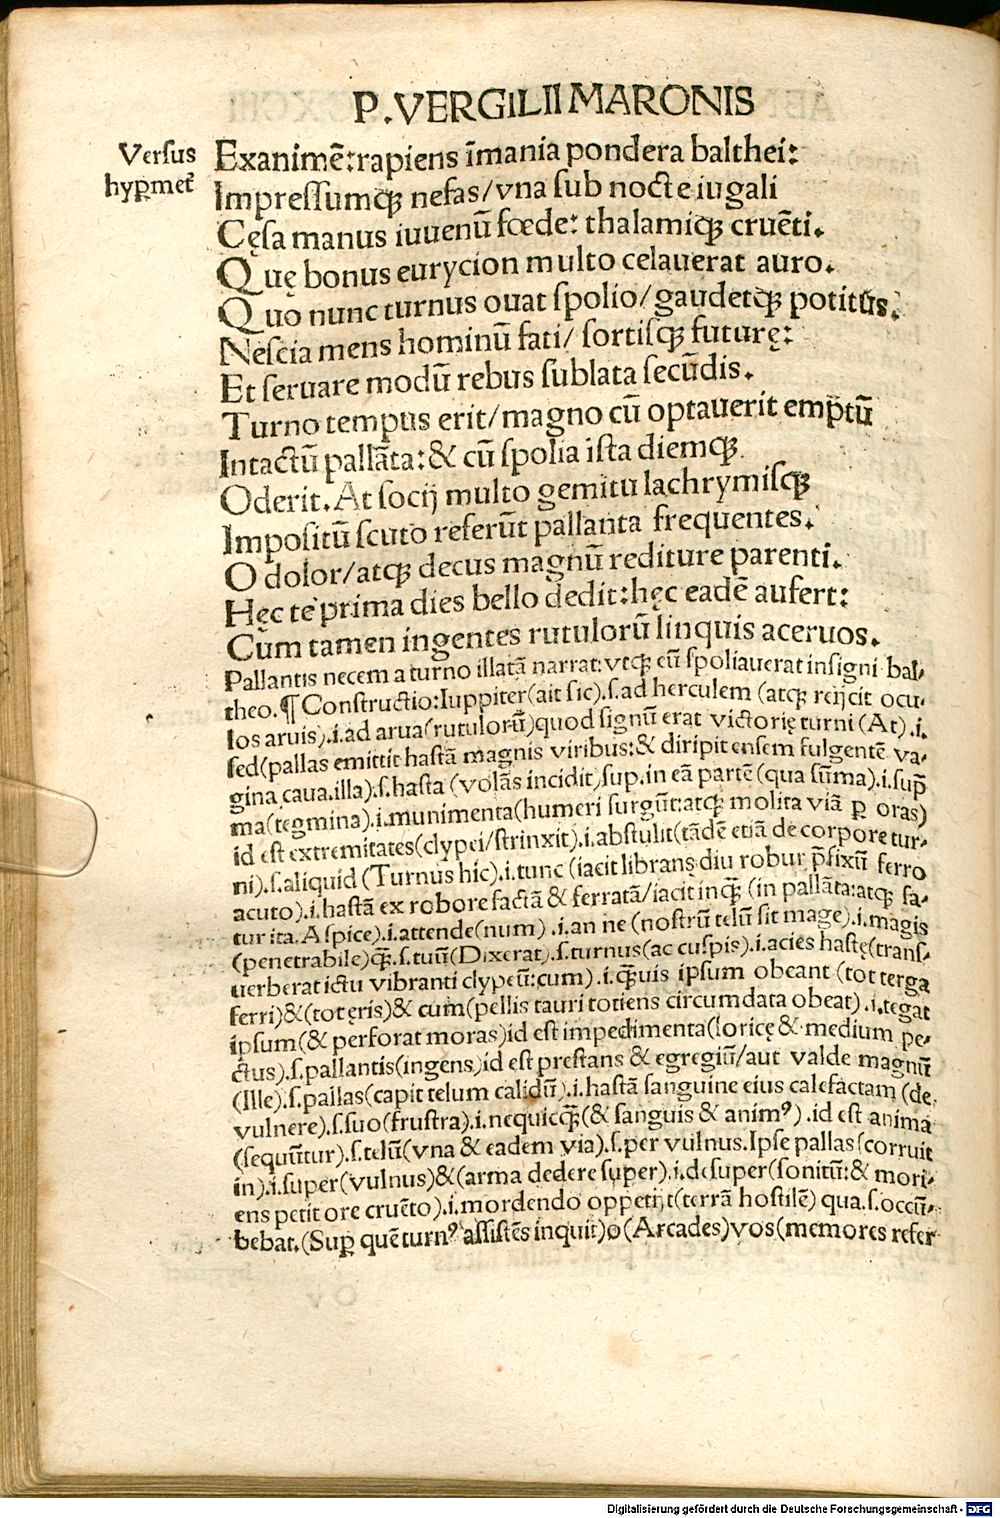 P. VERGILII MARONIS
Versus
hyꝑmet͛
Exanimē:rapiens īmania pondera balthei:
Impressumq̃ nefas/vna sub nocte iugali
Cęsa manus iuuenū fœde: thalamiq̃ cruēti.
Quę bonus eurycion multo celauerat auro.
Quo nunc turnus ouat spolio/gaudetq̃ potitus.
Nescia mens hominū fati/ sortisq̃ futurę:
Et seruare modū rebus sublata secūdis.
Turno tempus erit/magno cū optauerit emptū
Intactū pallāta:& cū spolia ista diemq̃
Oderit. At socij multo gemitu lachrymisq̃
Impositū scuto referūt pallanta frequentes.
O dolor/atq̃ decus magnū rediture parenti.
Hęc te prima dies bello dedit:hęc eadē aufert:
Cum tamen ingentes rutulorū linquis aceruos.
Pallantis necem a turno illatā narrat: vtq̃ eū spoliauerat insigni bal-
theo.¶Constructio:Iuppiter(ait sic).s.ad herculem (atq̃ reijcit ocu-
los aruis).i.ad arua(rutulorū)quod signū erat victorię turni (At) .i.
sed(pallas emittit hastā magnis viribus:& diripit ensem fulgentē va-
gina caua.illa).s.hasta (volās incidit)sup.in eā partē(qua sūma).i.sup̄
ma(tegmina).i.munimenta(humeri surgūt:atq̃ molita viā ꝑ oras)
id est extremitates(clypei/strinxit).i.abstulit(tādē etiā de corpore tur-
ni).s.aliquid (Turnus hic).i.tunc (iacit librans diu robur p̄fixū ferro
acuto).i.hastā ex robore factā & ferratā/iacit inq̃ (in pallāta:atq̃ fa-
tur ita. Aspice).i.attende(num) .i.an ne (nostrū telū sit mage).i.magis
(penetrabile)q̃.s.tuū(Dixerat).s.turnus(ac cuspis).i.acies hastę(trans-
uerberat ictu vibranti clypeū:cum).i.q̃uis ipsum obeant (tot terga
ferri)&(tot ęris)& cum(pellis tauri totiens circumdata obeat) .i.tegat
ipsum(& perforat moras)id est impedimenta(loricę & medium pe-
ctus).s.pallantis(ingens)id est prestans & egregiū/aut valde magnū
(Ille).s.pallas(capit telum calidū).i.hastā sanguine eius calefactam (de
vulnere).s.suo(frustra).i.nequicq̃(& sanguis & anim⁹) .id est anima
(sequūtur).s.telū(vna & eadem via).s.per vulnus.Ipse pallas(corruit
in).i.super(vulnus)&(arma dedere super).i.desuper(sonitū:& mori-
ens petit ore cruēto).i.mordendo oppetijt(terrā hostilē) qua.s.occū-
bebat.(Suꝑ quē turn⁹ assistēs inquit)o(Arcades)vos(memores refer
Digitalisierung gefördert durch die Deutsche Forschungsgemeinschaft - DFG